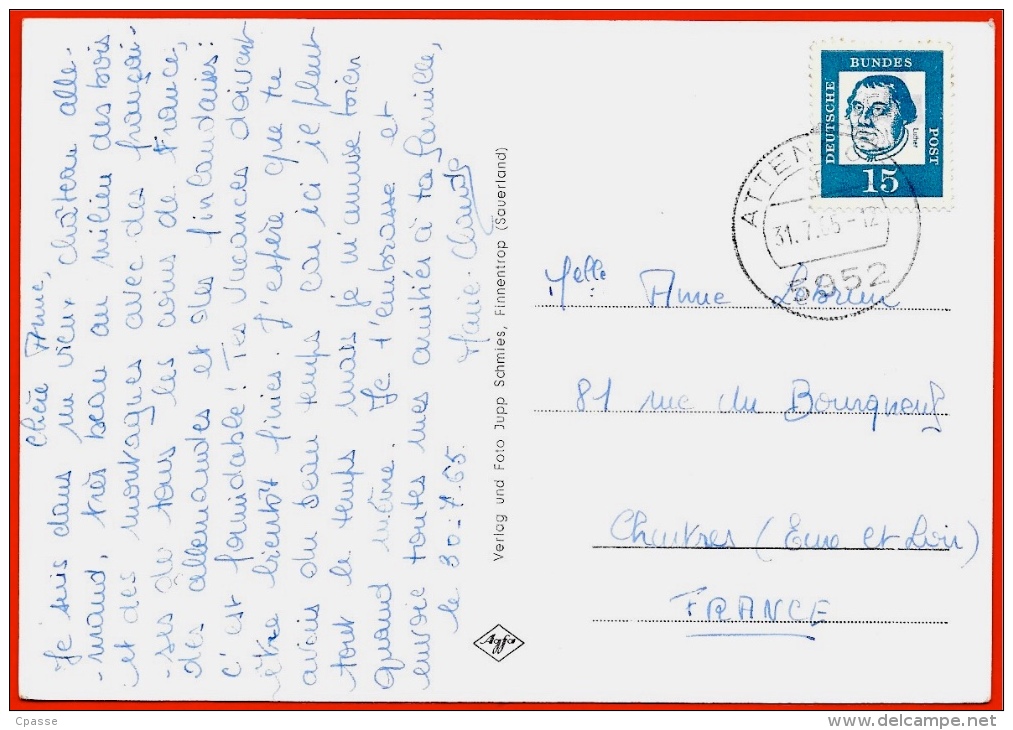 Chère Anne,
Je suis dans un vieux château alle-
-mand, très beau au milieu des bois
et des montagnes avec des françai-
-ses de tous les coins de France,
des allemandes et des finlandaises :
c'est formidable ! Tes vacances doivent
être bientôt finies. J'espère que tu
avais du beau temps car ici il pleut
tout le temps mais je m'amuse bien
quand même. Je t'embrasse et
envoie toutes mes amitiés à ta famille,
Marie-Claude
le 30-7.65.
Verlag und Foto Jupp Schmies, Finnentrop (Sauerland)
Agfa
DEUTSCHE
BUNDES
POST
Luther
15
31.7.65-12
5952
Melle Anne
81 rue du Bourgneuf
Chartres (Eure et Loir)
FRANCE
Cpasse
www.delcampe.net